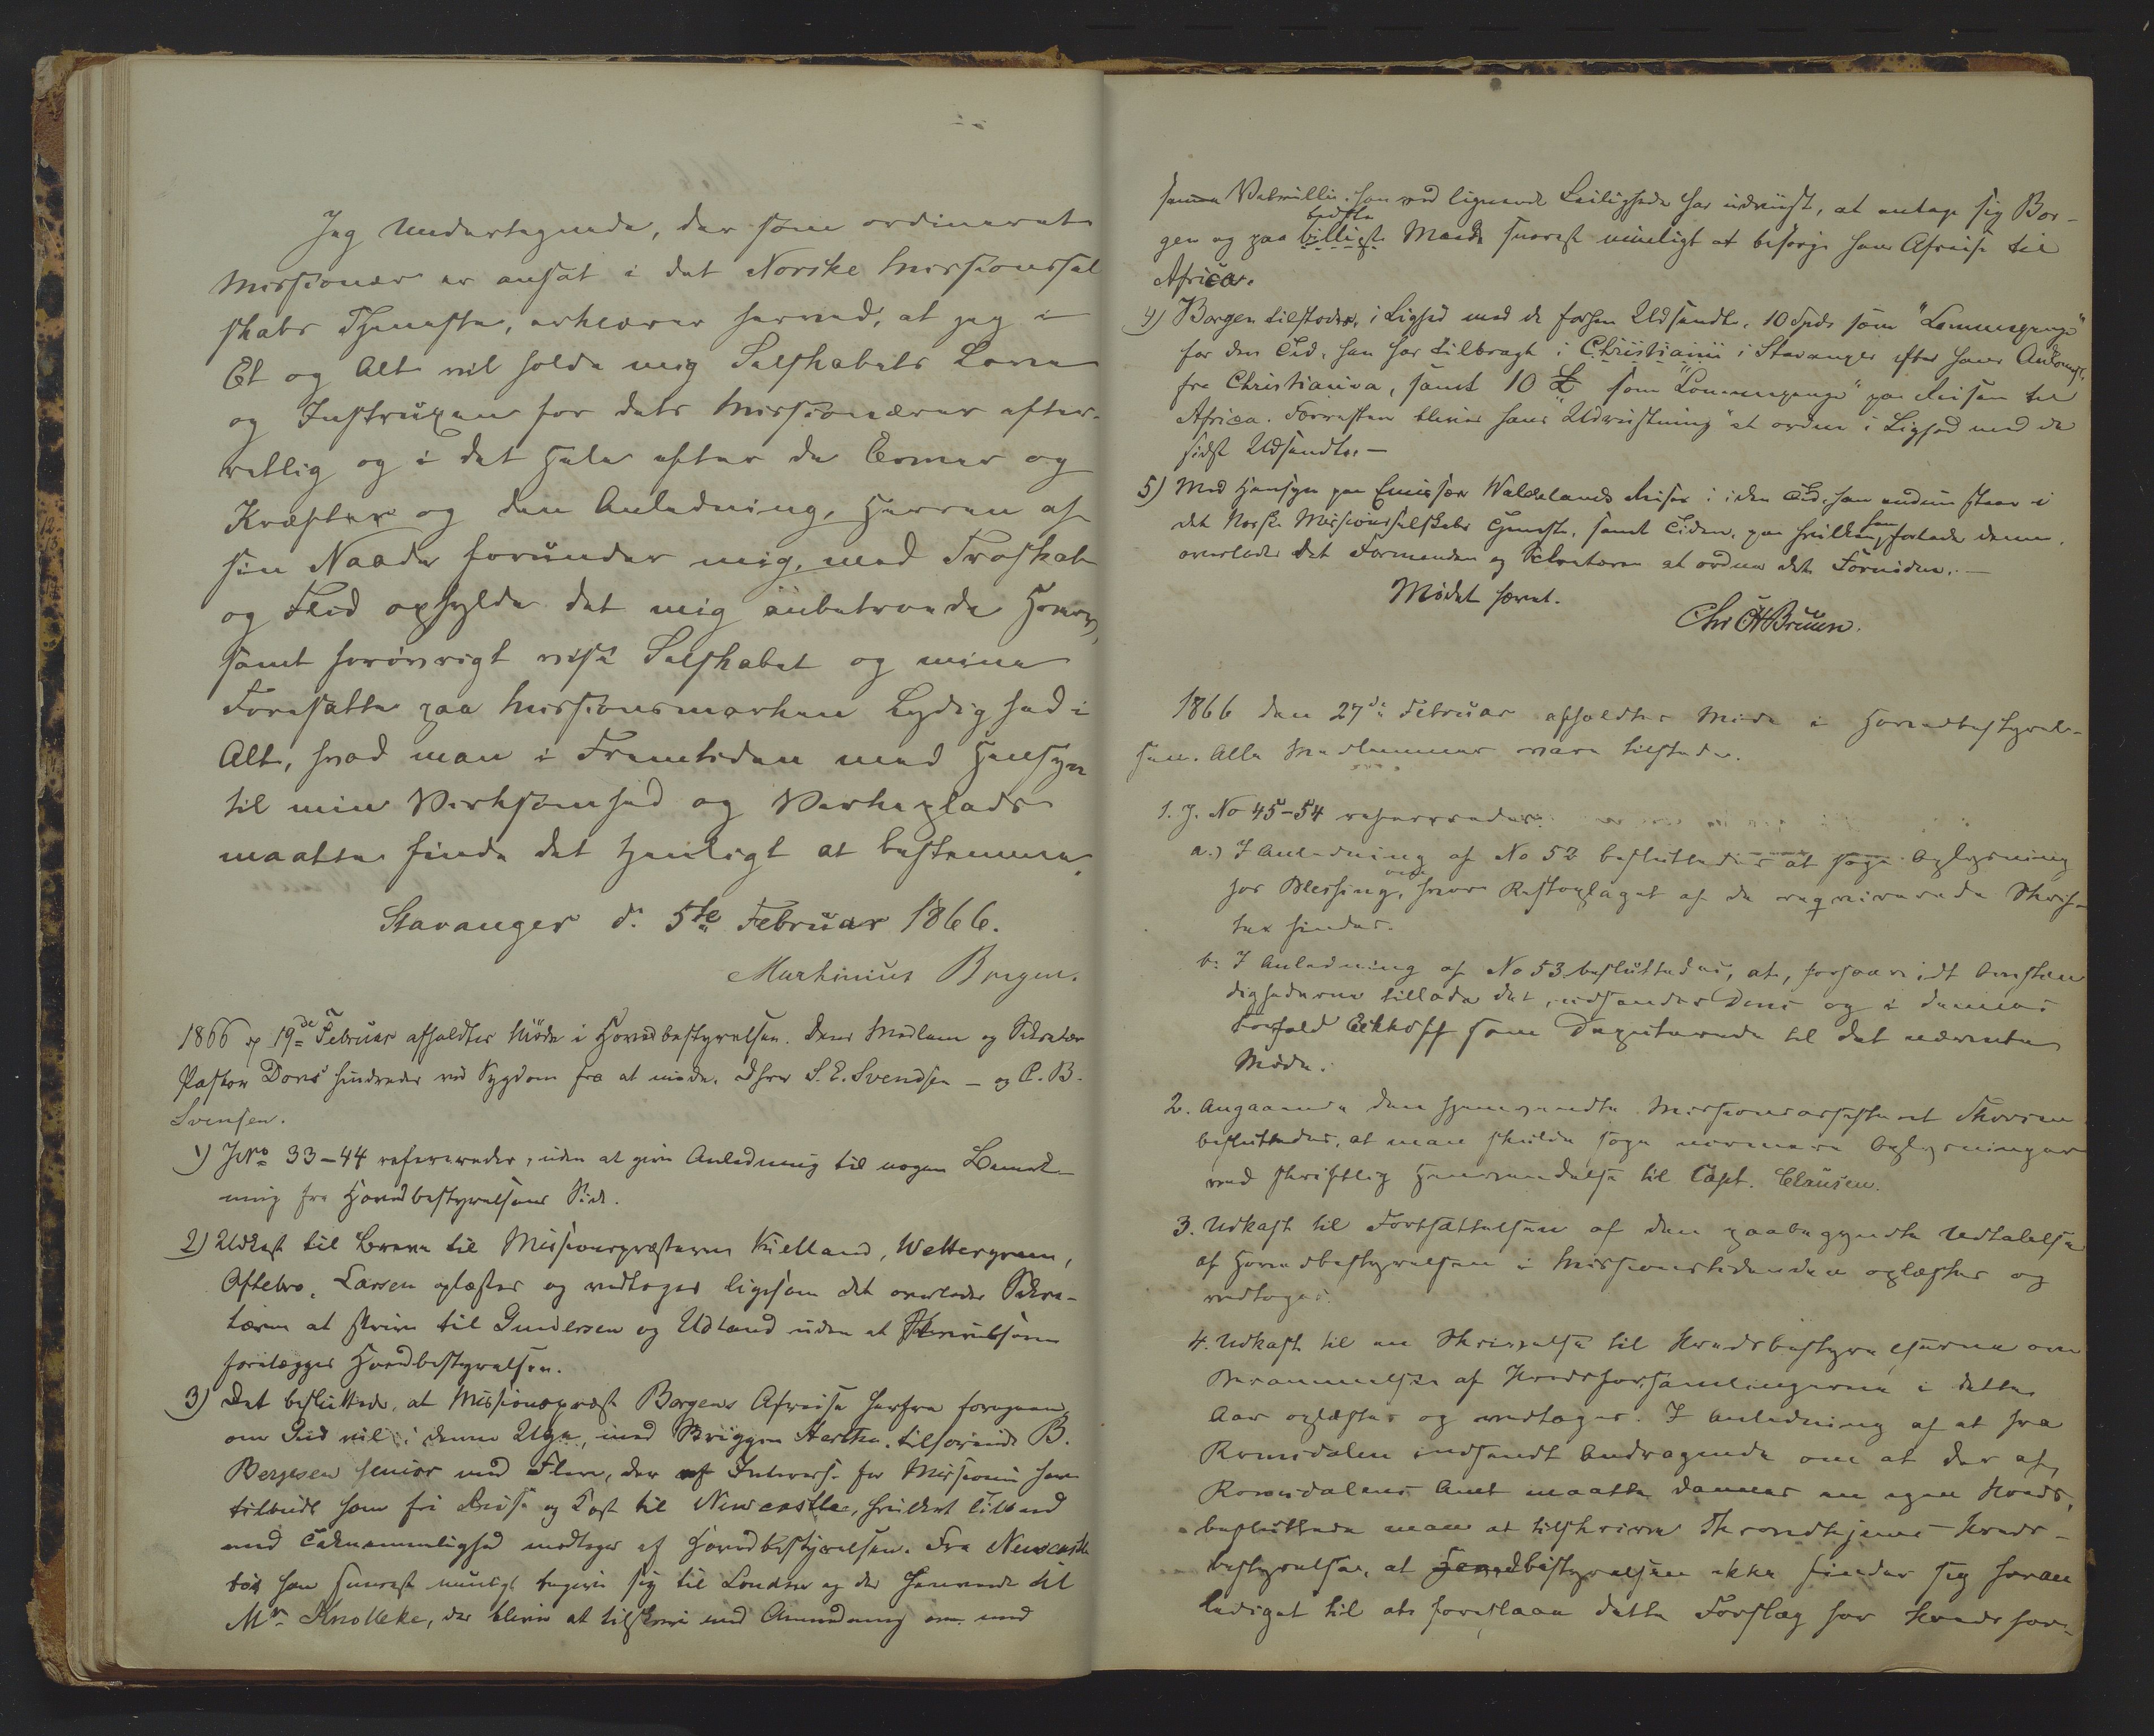 Jeg Undertegnede, der som ordineret
Missionær er ansat i det Norske Missionssel
skabs Tjeneste, erklærer herved, at jeg i
Et og Alt vil holde mig Selskabets Love
og Instruxen for dets Missionærer efter-
rettelig og i det Hele efter de Evner og
Kræfter og den Anledning, Herren af
sin Naade forunder mig, med Troskab
og Flid opfylde det mig anbetroede Hverv,
samt forøvrigt vise Selskabet og mine
Foresatte paa Missionsmarken Lydighed i
Alt, hvad man i Fremtiden med Hensyn
til min Virksomhed og Virkeplads
maatte finde det tjenligt at bestemme.
Stavanger d. 5te Februar 1866.
Martinius Borgen.
1866 d 19de Februar afholdtes Möde i Hovedbestyrelsen. Dens Medlem og Sekretær
Pastor Dons hindredes ved Sygdom fra at möde, dHrr S. E. Svendsen - og C. B.
Svensen.
1) JNo 33-44 refereredes, uden at give Anledning til nogen Bemærk-
ning fra Hovedbestyrelsens Side.
2) Udkast til Breve til Missionspræsterne Kielland, Wettergreen,
Oftebro, Larsen oplæstes og vedtoges ligesom det overlodes Sekre-
tæren at skrive til Gundersen og Udland uden at Skrivelserne
forelægges Hovedbestyrelsen.
3) Det besluttedes, at Missionspræst Borgens Afreise herfra foregaar,
om Gud vil, i denne Uge, med Briggen Hertha, tilhörende B.
Bergesen senior med Flere, der af Interesse for Missionen har
tilbudt ham fri Reise og Kost til Newcastle, hvilket Tilbud
med Taknemmelighed modtages af Hovedbestyrelsen. Fra Newcastle
bör han snarest muligt begive sig til London og der henvende sig til
Mr. Knolleke, der bliver at tilskrive med Anmodning om med
samme Velvillie, han ved lignende Leilighede har udviist, at antage sig Bor-
gen og paa bedste billigste Maade snarest muligt at besörge hans Afreise til
Africa.
4) Borgen tilstodes, i Lighed med de forhen Udsendte, 10 Spd. som "Lommepenge"
for den Tid, han har tilbragt i Christiania i Stavanger efter hans Ankomst
fra Christiania, samt 10 £ som "Lommepenge" paa Reisen til
Africa. Forresten bliver hans "Udrustning" at ordne i Lighed med de
sidst Udsendte. -
5) Med Hensyn paa Emissær Waldelands Reiser i den Tid, han endnu staar i
det Norske Missionsselskabs Tjeneste, samt Tiden, paa hvilken han forlader denne,
overlodes det Formanden og Sekretæren at ordne det Fornödne. -
Mödet hævet.
Chr A Bruun.
1866 den 27de Februar afholdtes Möde i Hovedbestyrel-
sen. Alle Medlemmer vare tilstede.
1. J. No 45-54 refereredes.
a.) I Anledning af No 52 besluttedes at söge Oplysning
hos Blessing, om hvor Restoplaget af de reqvirerede Skrif-
ter findes.
b: I Anledning af No 53 besluttedes, at, forsaavidt Omstæn
dighederne tillade det, udsendes Dons og i dennes
Forfald Eckhoff som Deputerede til det nævnte
Möde.
2. Angaaende den hjemvendte Missionsassistent Thorsen
besluttedes, at man skulde söge nærmere Oplysninger
ved skriftlig Henvendelse til Capt. Clausen.
3. Udkast til Fortsættelsen af den paabegyndte Udtalelse
af Hovedbestyrelsen i Missionstidenden oplæstes og
vedtoges.
4. Udkast til en Skrivelse til Kredsbestyrelserne om
Berammelse af Kredsforsamlingerne i dette
Aar oplæstes og vedtoges. I Anledning af et fra
Romsdalen indsendt Andragende om at der af
Romsdalens Amt maatte dannes en egen Kreds,
besluttede man at tilskrive Throndhjems Kreds-
bestyrelse, at Hovedbestyrelsen ikke finder sig foran
lediget til at foreslaa dette Forslag for Kredsfor-